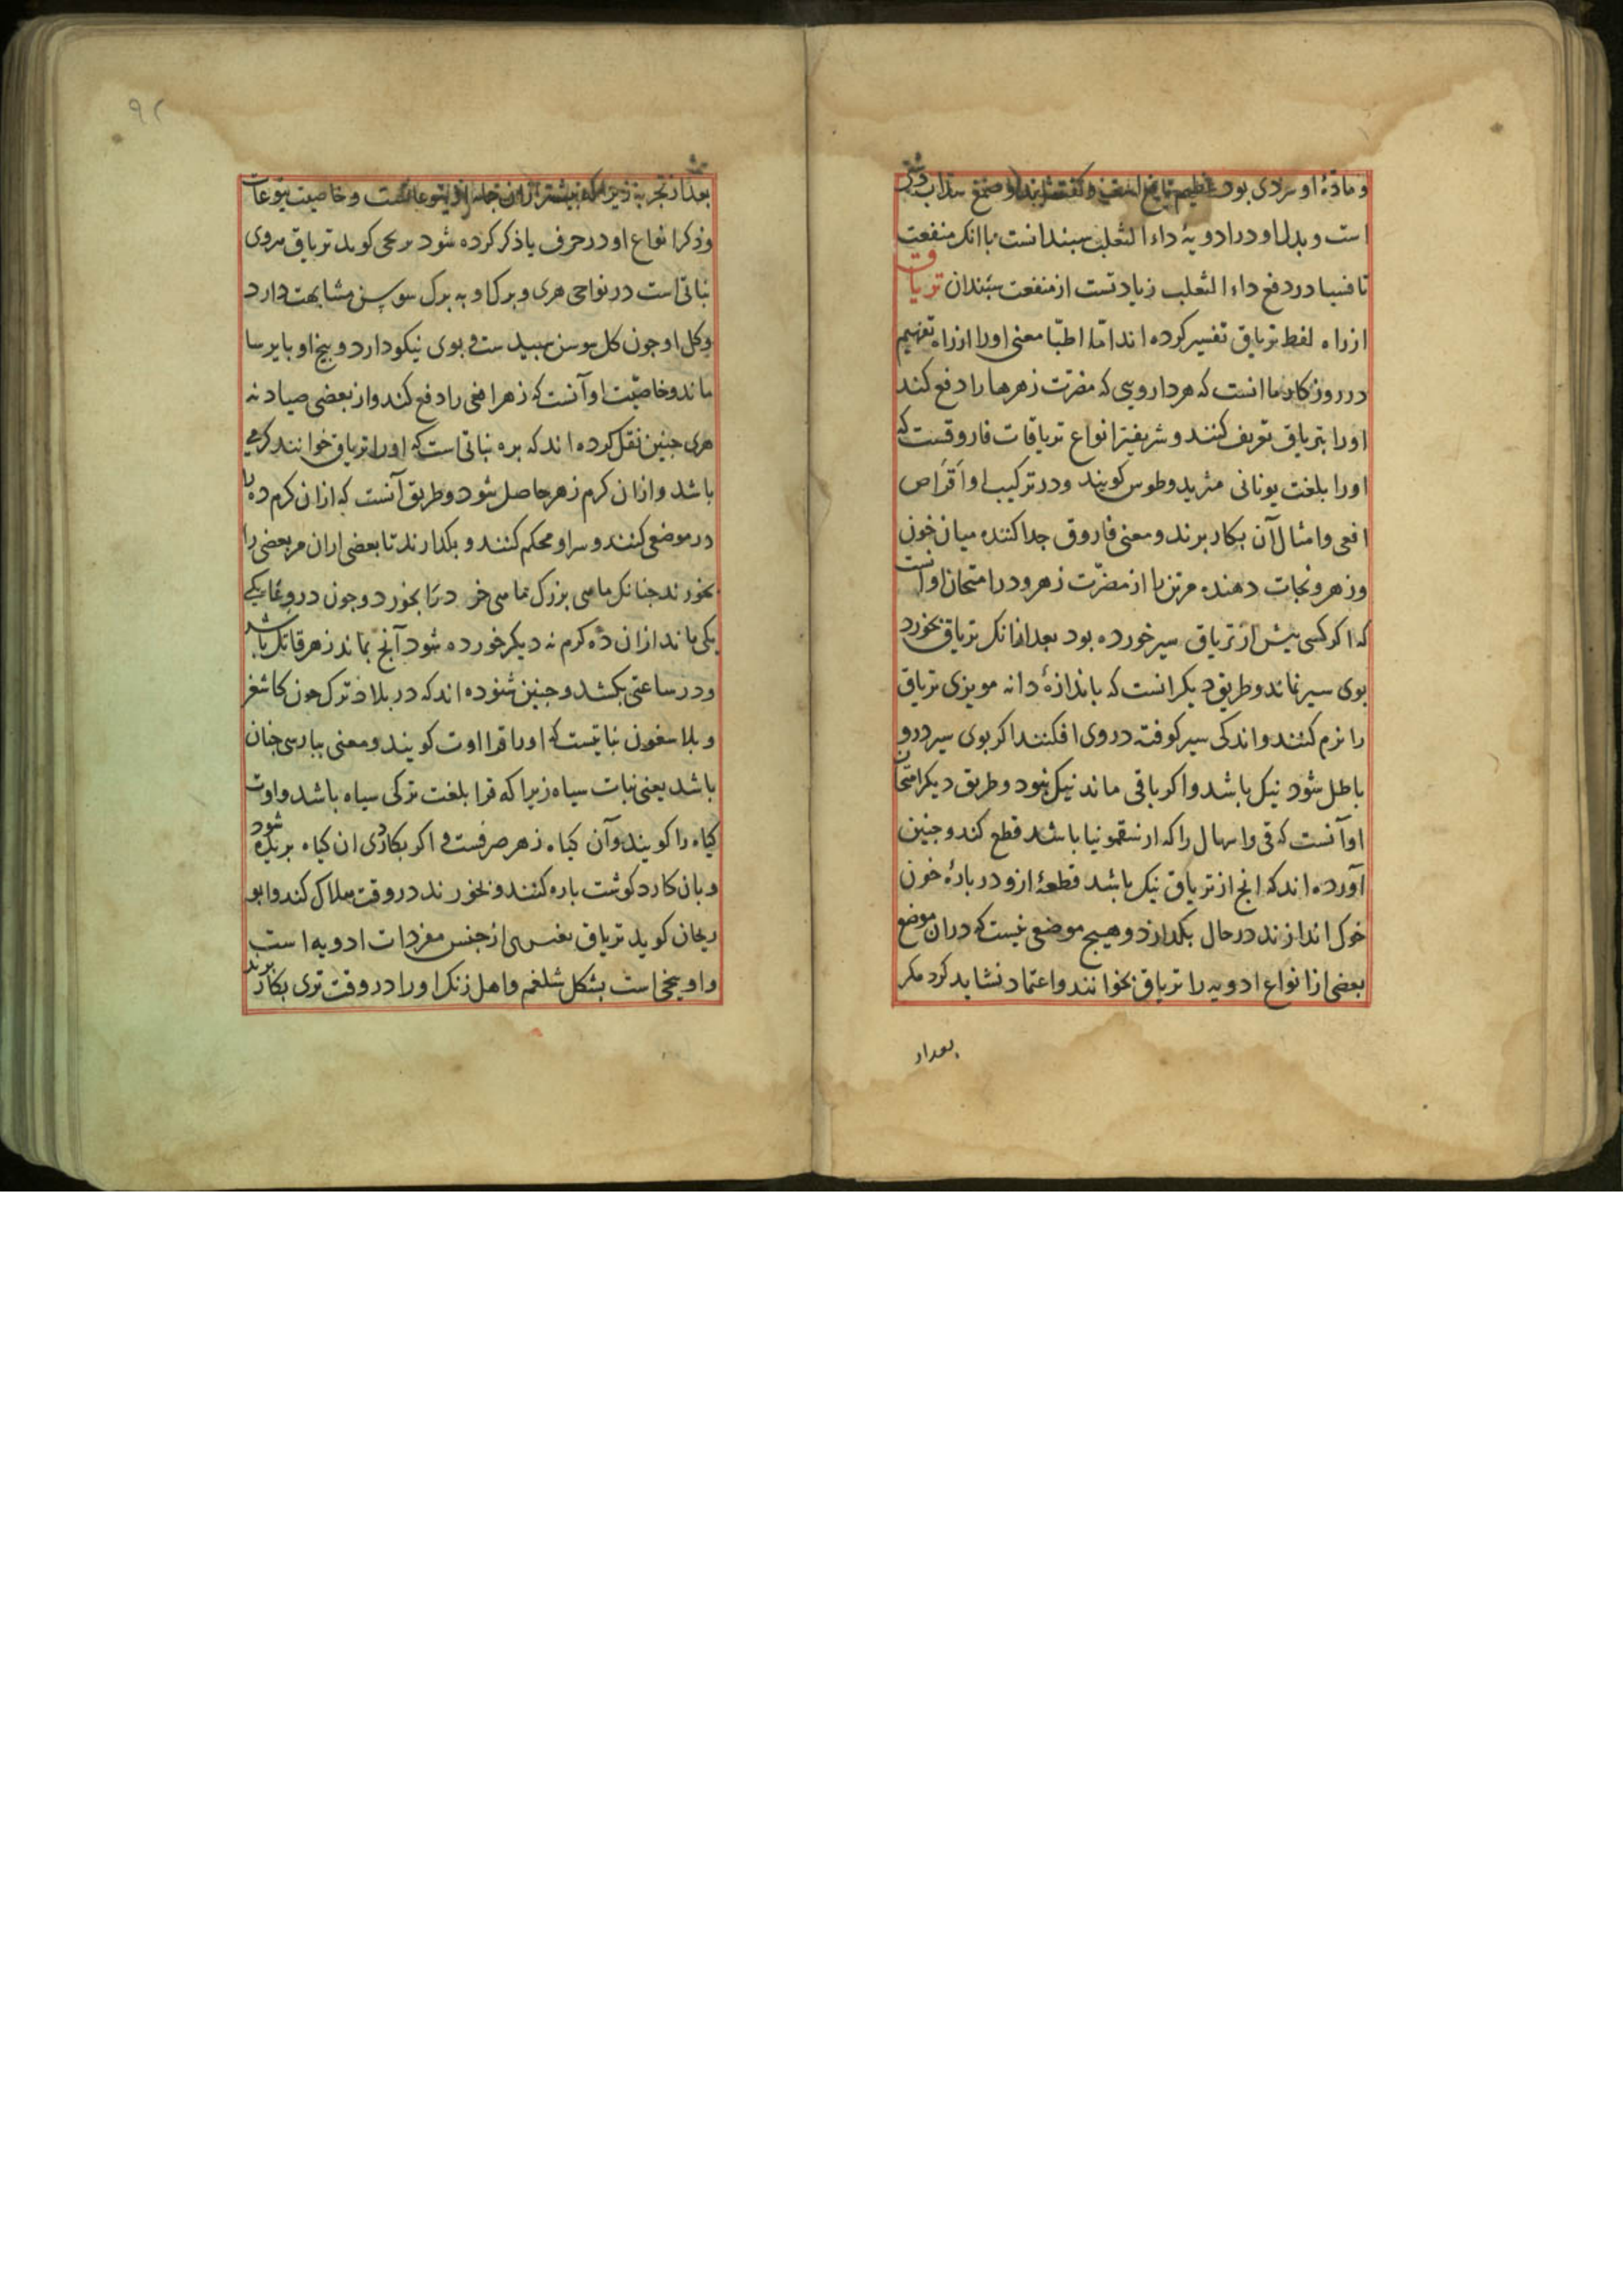 و مادهٔ او سردی بود عظیم
است و بدل او در ادویهٔ داء الثعلب سپندانست با انک منفعت
تافسیا در دفع داء الثعلب زیادتست از منفعت سپندان تریاق
از راه لفظ تریاق تفسیر کرده اند اما اطبّا معنی اورا از راه تفهیم
در روزکار ما انست که هر دارویی که مضرّت زهرها را دفع کند
اورا بتریاق تعریف کنند و شریفتر انواع تریاقات فاروقست که
اورا بلغت یونانی مثریدوطوس کویند و در ترکیب او اَقراص
افعی و امثال آن بکار برند و معنی فاروق جدا کننده میان خون
و زهر و نجات دهنده مر تن را از مضرّت زهر و در امتحان او انست
که اکر کسی بیش از تریاق سیر خورده بود بعد از انک تریاق بخورد
بوی سیر نماند و طریق دیکر انست که باندازهٔ دانه مویزی تریاق
را نرم کنند و اندکی سیر کوفته در وی افکنند اکر بوی سیر درو
باطل شود نیک باشد و اکر باقی ماند نیک نبود و طریق دیکر امتحان
او آنست که قی و اسهال را که از سقمونیا باشد قطع کند و جنین
آورده اند که انج از تریاق نیک باشد قطعهٔ ازو در بارهٔ خون
خوک اندازند در حال بکدازد و هیچ موضعی نیست که دران موضع
بعضی از انواع ادویه را تریاق نخوانند و اعتماد نشاید کرد مکر
بعد از
۹۲
بعد از تجربه زیرا که بیشتر و خاصیت یتوعات
و ذکر انواع او در حرف یا ذکر کرده شود کوید تریاق مروی
نباتی است در نواحی هری و برک او به برک سوسن مشابهت دارد
و کل او جون کل سوسن سپید ست و بوی نیکو دارد و بیخ او بایرسا
ماند و خاصیّت او آنست که زهر افعی را دفع کند و از بعضی صیادنه
هری جنین نقل کرده اند که بره نباتی است که اورا تریاق خوانند کرمی
باشد و ازان کرم زهر حاصل شود و طریق آنست که ازان کرم ده تا
در موضعی کنند و سر او محکم کنند و بکذارند تا بعضی ازان مر بعضی را
بخورند جنانک ماهی بزرک ماهی خرد را بخورد و جون در وعا یکی
یکی ماند ازان ده کرم نه دیکر خورده شود آنج بماند زهر قاتل باشد
و در ساعتی بکشد و جنین شنوده اند که در بلاد ترک جون کاشغر
و بلاساغون نباتیست که اورا قرا اوت کویند و معنی ببارسی جنان
باشد یعنی نبات سیاه زیرا که قرا بلغت ترکی سیاه باشد و اوت
کیاه را کویند و آن کیاه زهر صرفست و اکر بکاردی ان کیاه بریده شود
و بان کارد کوشت باره کنند و بخورند در وقت هلاک کند و ابو
ریحان کوید تریاق بنفس از جنس مفردات ادویه است
و او بیخی است بشکل شلغم و اهل زنک اورا در وقت تری بکار برند